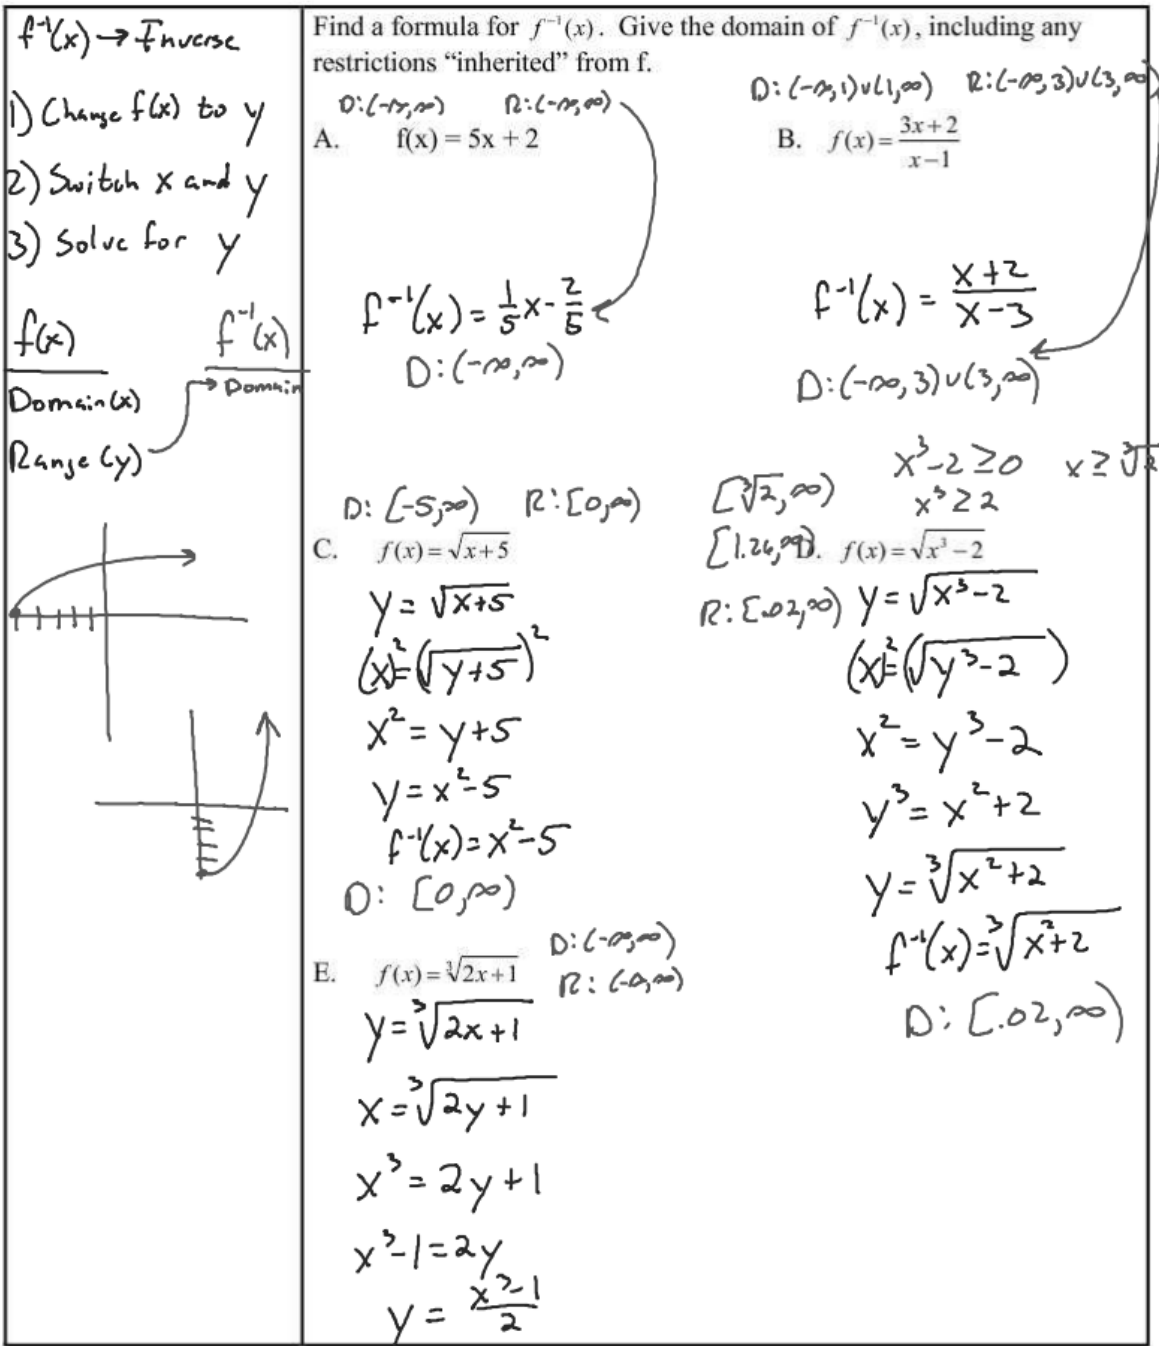 f⁻¹(x) → Inverse
1) Change f(x) to y
2) Switch x and y
3) Solve for y
f(x) f⁻¹(x)
Domain(x) → Domain
Range(y)
Find a formula for f⁻¹(x). Give the domain of f⁻¹(x), including any
restrictions “inherited” from f.
D:(-∞,∞) R:(-∞,∞)
A. f(x) = 5x + 2
f⁻¹(x) = 1/5 x - 2/5
D:(-∞,∞)
D:(-∞,1)∪(1,∞) R:(-∞,3)∪(3,∞)
B. f(x) = (3x+2)/(x-1)
f⁻¹(x) = (x+2)/(x-3)
D:(-∞,3)∪(3,∞)
D: [-5,∞) R:[0,∞)
C. f(x) = √(x+5)
y = √(x+5)
(x)² = (√(y+5))²
x² = y+5
y = x²-5
f⁻¹(x) = x²-5
D: [0,∞)
x³-2 ≥ 0 x ≥ ∛2
[∛2,∞) x³ ≥ 2
[1.26,∞)
D. f(x) = √(x³-2)
R: [.02,∞) y = √(x³-2)
(x)² = (√(y³-2))
x² = y³-2
y³ = x²+2
y = ∛(x²+2)
f⁻¹(x) = ∛(x²+2)
D: [.02,∞)
D:(-∞,∞)
E. f(x) = ∛(2x+1) R: (-∞,∞)
y = ∛(2x+1)
x = ∛(2y+1)
x³ = 2y+1
x³-1 = 2y
y = (x³-1)/2